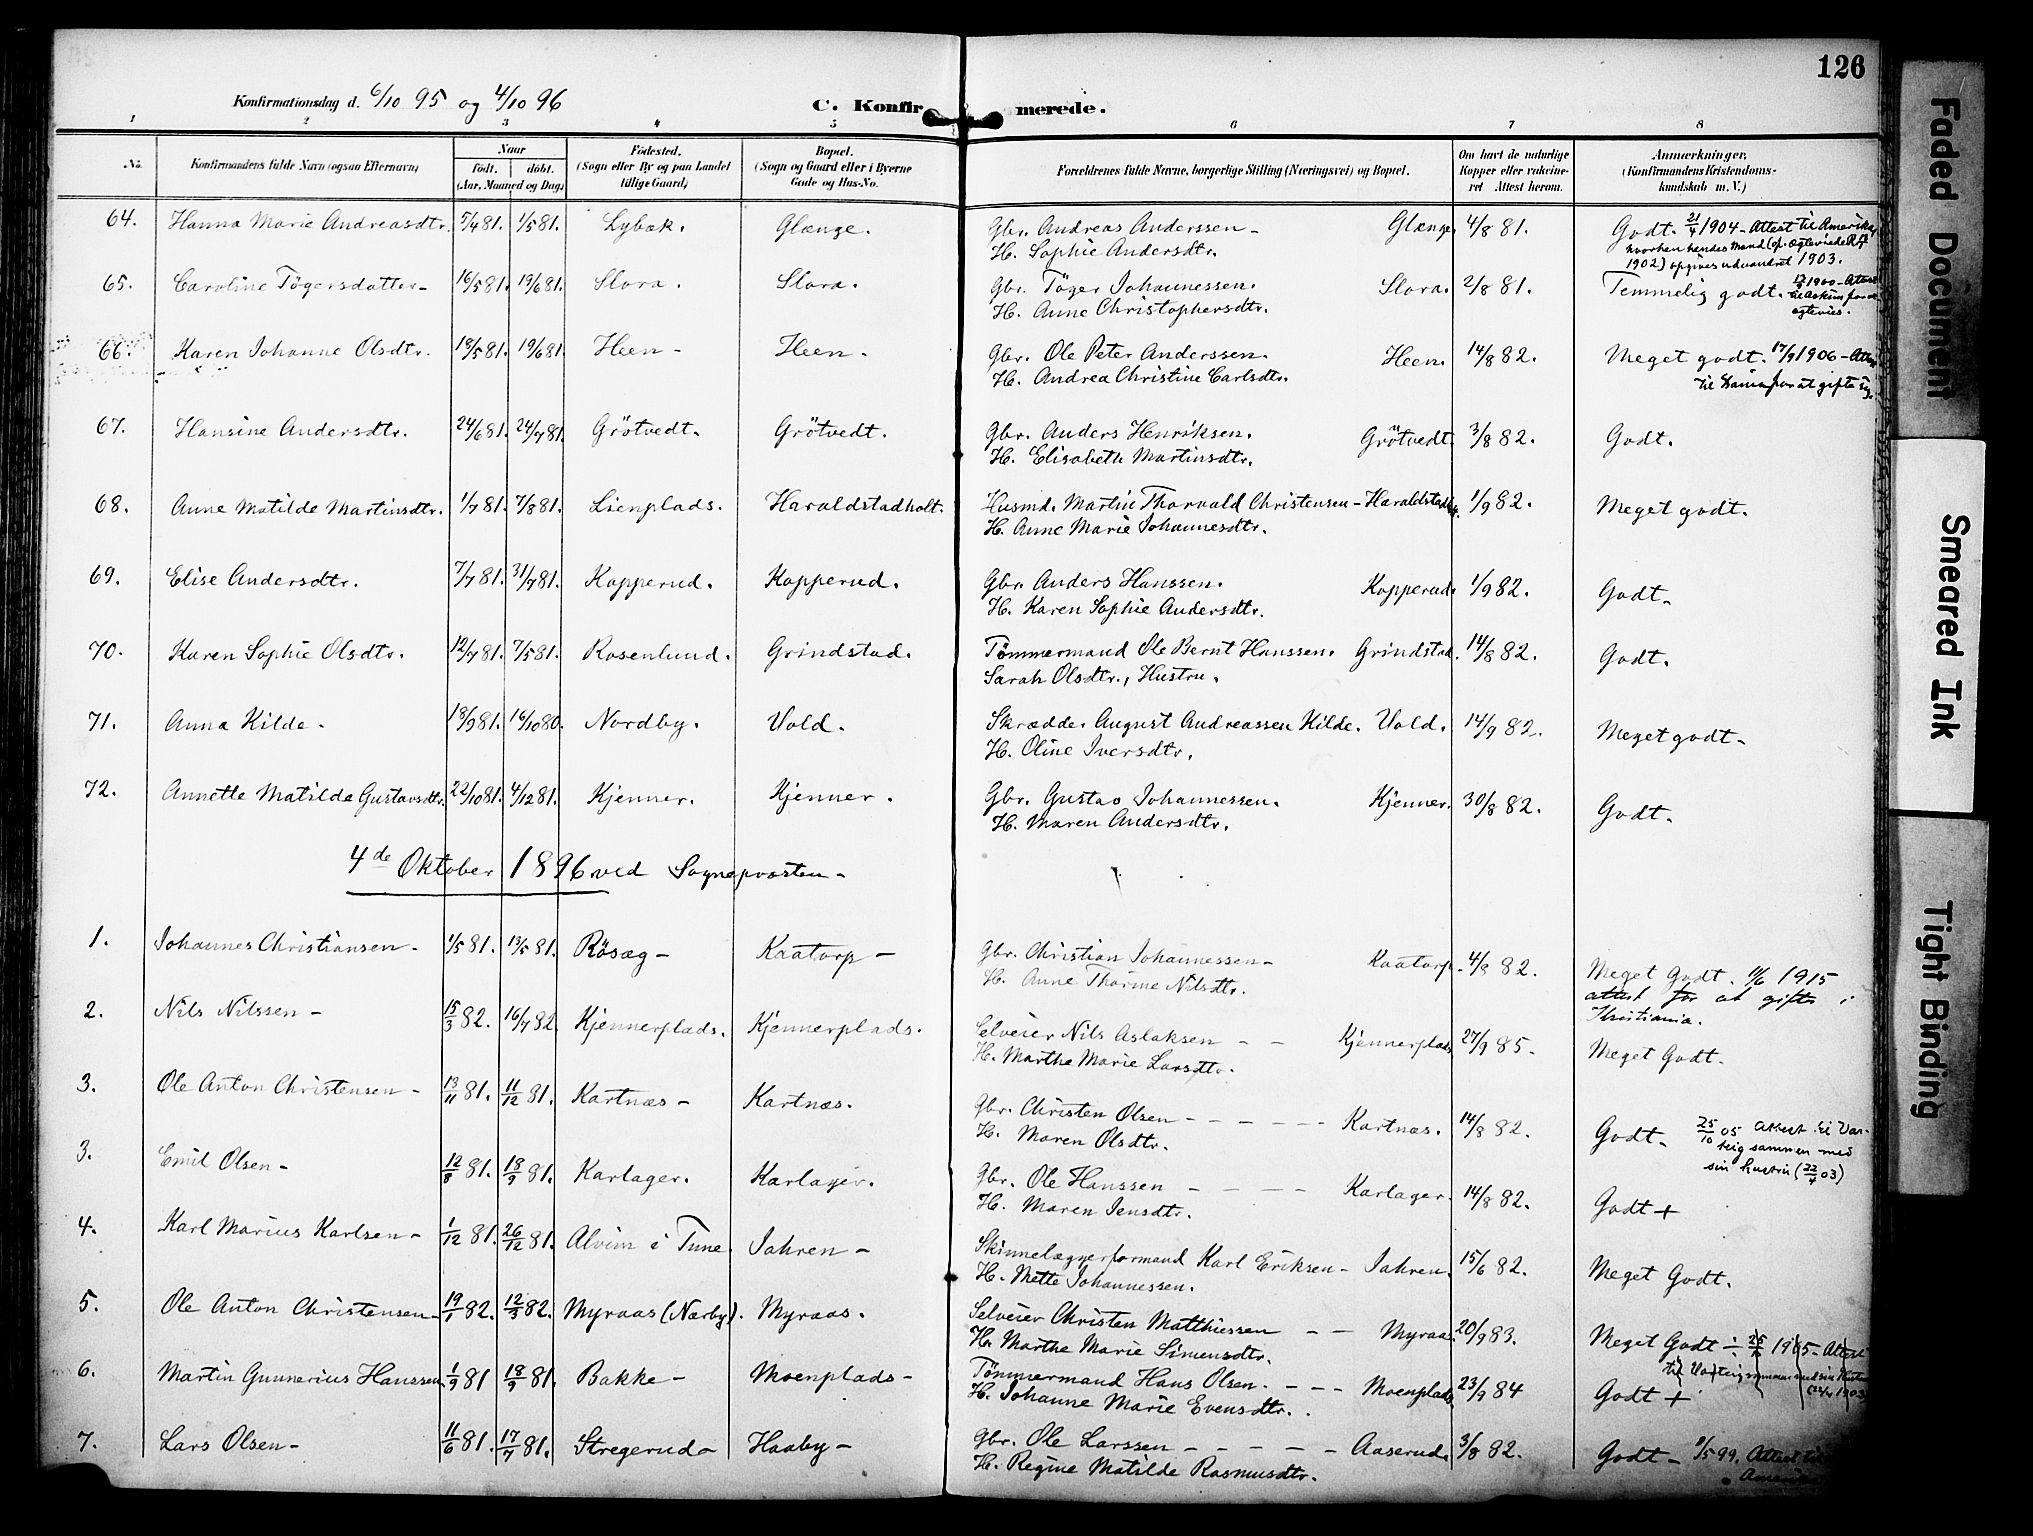 126
Konfirmationsdag d. 6/10 95 og 4/10 96
C. Konfirmerede.
1 2 3 4 5 6 7 8
No. Konfirmandens fulde Navn (ogsaa Efternavn) Naar født. døbt. (Aar, Maaned og Dag) Fødested. (Sogn eller By og paa Landet tillige Gaard) Bopæl. (Sogn og Gaard eller i Byerne Gade og Hus-No. Forældrenes fulde Navne, borgerlige Stilling (Næringsvei) og Bopæl. Om havt de naturlige Kopper eller vakcineret Attest herom. Anmærkninger, (Konfirmandens Kristendomskundskab m. V.)
64. Hanna Marie Andreasdtr. 5/4 81. 1/5 81. Lybæk. Glænge. Gbr. Andreas Anderssen - Glænge 4/8 81. Godt. 21/4 1904 - Attest til Amerika,
H. Sophie Andersdtr. hvorhen hendes Mand (op. ægteviede
1902) opgives udvandret 1903.
65. Caroline Tögersdatter - 16/5 81. 19/6 81. Slora. Slora. Gbr. Töger Johannessen. Slora. 2/8 81. Temmelig godt. 1900 - Attest
H. Anne Christophersdtr. til Askim for at
ægtevies.
66. Karen Johanne Olsdtr. 18/5 81. 19/6 81. Heen - Heen. Gbr. Ole Peter Anderssen. Heen. 14/8 82. Meget godt. 17/9 1906 - Attest
H. Andrea Christine Carlsdtr. til for at gifte sig
67. Hansine Andersdtr. 24/6 81. 24/7 81. Grötvedt. Grötvedt. Gbr. Anders Henriksen. Grötvedt. 3/8 82. Godt.
H. Elisabeth Martinsdtr.
68. Anne Matilde Martinsdtr. 1/7 81. 7/8 81. Lienplads. Haraldstadholt. Husmd. Martin Thorvald Christensen - Haraldstadh. 1/9 82. Meget godt.
H. Anne Marie Johannesdtr.
69. Elise Andersdtr. 7/7 81. 31/7 81. Kopperud. Kopperud. Gbr. Anders Hanssen. Kopperud. 1/9 82. Godt -
H. Karen Sophie Andersdtr.
70. Karen Sophie Olsdtr. 12/7 81. 7/5 81. Rosenlund. Grindstad. Tømmermand Ole Bernt Hanssen. Grindstad. 14/8 82. Godt.
Sarah Olsdtr., Hustru.
71. Anna Kilde - 18/9 81. 16/10 80. Nordby. Vold. Skrædder August Andreassen Kilde. Vold. 14/9 82. Meget godt -
H. Oline Iversdtr.
72. Annette Matilde Gustavsdtr. 22/10 81. 4/12 81. Kjenner. Kjenner. Gbr. Gustav Johannessen. Kjenner. 30/8 82. Godt.
H. Maren Andersdtr.
4de Oktober 1896 ved Sogneprosten -
1. Johannes Christiansen - 1/5 81. 13/5 81. Rösæg - Kaatorp - Gbr. Christian Johannessen - Kaatorp - 4/8 82. Meget Godt. 11/6 1915
H. Anne Thorine Nilsdtr. attest for at gifte i
Kristiania.
2. Nils Nilssen - 15/3 82. 16/7 82 Kjennerplads. Kjennerplads. Selveier Nils Aslaksen - - Kjennerplads 27/9 85. Meget Godt.
H. Marthe Marie Larsdtr.
3. Ole Anton Christensen - 13/11 81. 11/12 81. Kartnæs - Kartnæs. Gbr. Christen Olsen - - - - - - Kartnæs. 14/8 82. Godt - 25/10 05 Attest til Var-
H. Maren Olsdtr. teig sammen med
sin hustru (22/4 03)
3. Emil Olsen - 12/8 81. 18/9 81. Karlager. Karlager. Gbr. Ole Hanssen - - - - Karlager. 14/8 82. Godt +
H. Maren Jensdtr.
4. Karl Marius Karlsen - 1/12 81. 26/12 81. Alvim i Tune. Jahren - Skinnelægnerformand Karl Eriksen - Jahren. 15/6 82. Meget Godt.
H. Mette Johannessen.
5. Ole Anton Christensen - 19/1 82. 12/3 82. Myraas (Nærby). Myraas. Selveier Christen Matthiessen - - Myraas. 20/9 83. Meget Godt ÷ 25/ 1905 - Attest
H. Marthe Marie Simensdtr. til Varteig sammen med sin Hustru
6. Martin Gunnerius Hanssen. 1/9 81 18/9 81. Bakke - Moenplads - Tømmermand Hans Olsen. - - - Moenplads 23/9 84 Godt + 1903
H. Johanne Marie Evensdtr.
7. Lars Olsen - 11/6 81. 17/7 81. Stregerud - Haaby - Gbr. Ole Larssen - - - - - Aaserud. 3/8 82. Godt - 9/5 99. Attest til
H. Regine Matilde Rasmusdtr. Amerika
Faded Document
Smeared Ink
Tight Binding